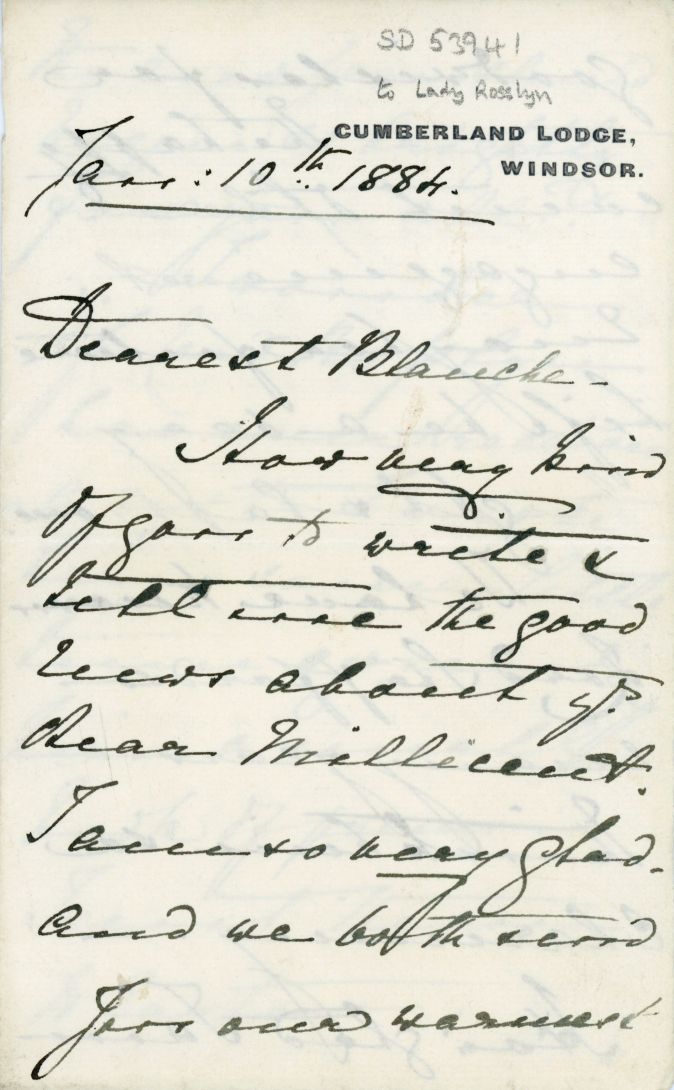 SD 53941
to Lady Rosslyn
CUMBERLAND LODGE,
WINDSOR.
Jan: 10th. 1884.
Dearest Blanche -
How very kind
of you to write &
tell me the good
news about yr.
dear Millicent.
I am so very glad -
and we both send
you our warmest